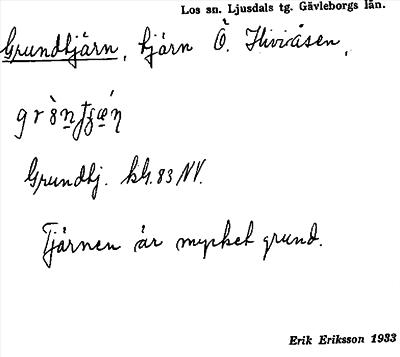 Los sn. Ljusdals tg. Gävleborgs län.
Grundtjärn, tjärn Ö.
Grundtj. kh. 83 NV.
Tjärnen är mycket grund.
Erik Eriksson 1933